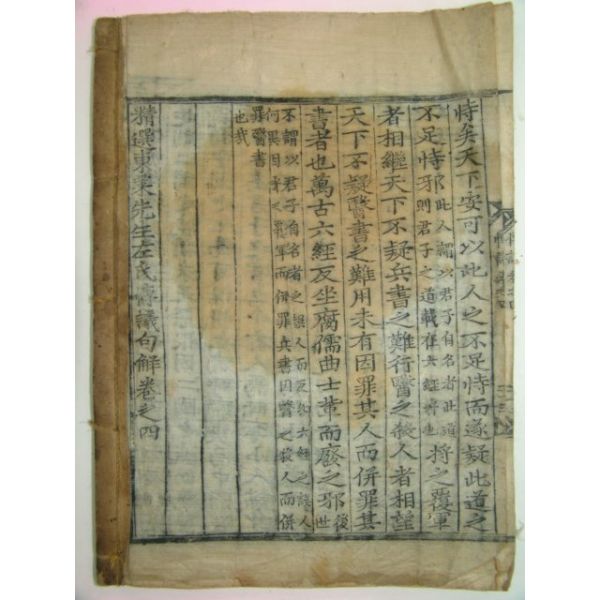 恃矣天下安可以此人之不足恃而遂疑此道之
不足恃邪此人謂以君子自名者此道則君子之道載在六經者也將之覆軍
者相繼天下不疑兵書之難行醫之殺人者相望
天下不疑醫書之難用未有因罪其人而併罪其
書者也萬古六經反坐腐儒曲士輩而廢之邪後世
不謂以君子自名者之誤人而反罪六經之誤人
何異因將之覆軍而併罪兵書因醫之殺人而併
罪醫書
也哉
精選東萊先生左氏博議句解卷之四